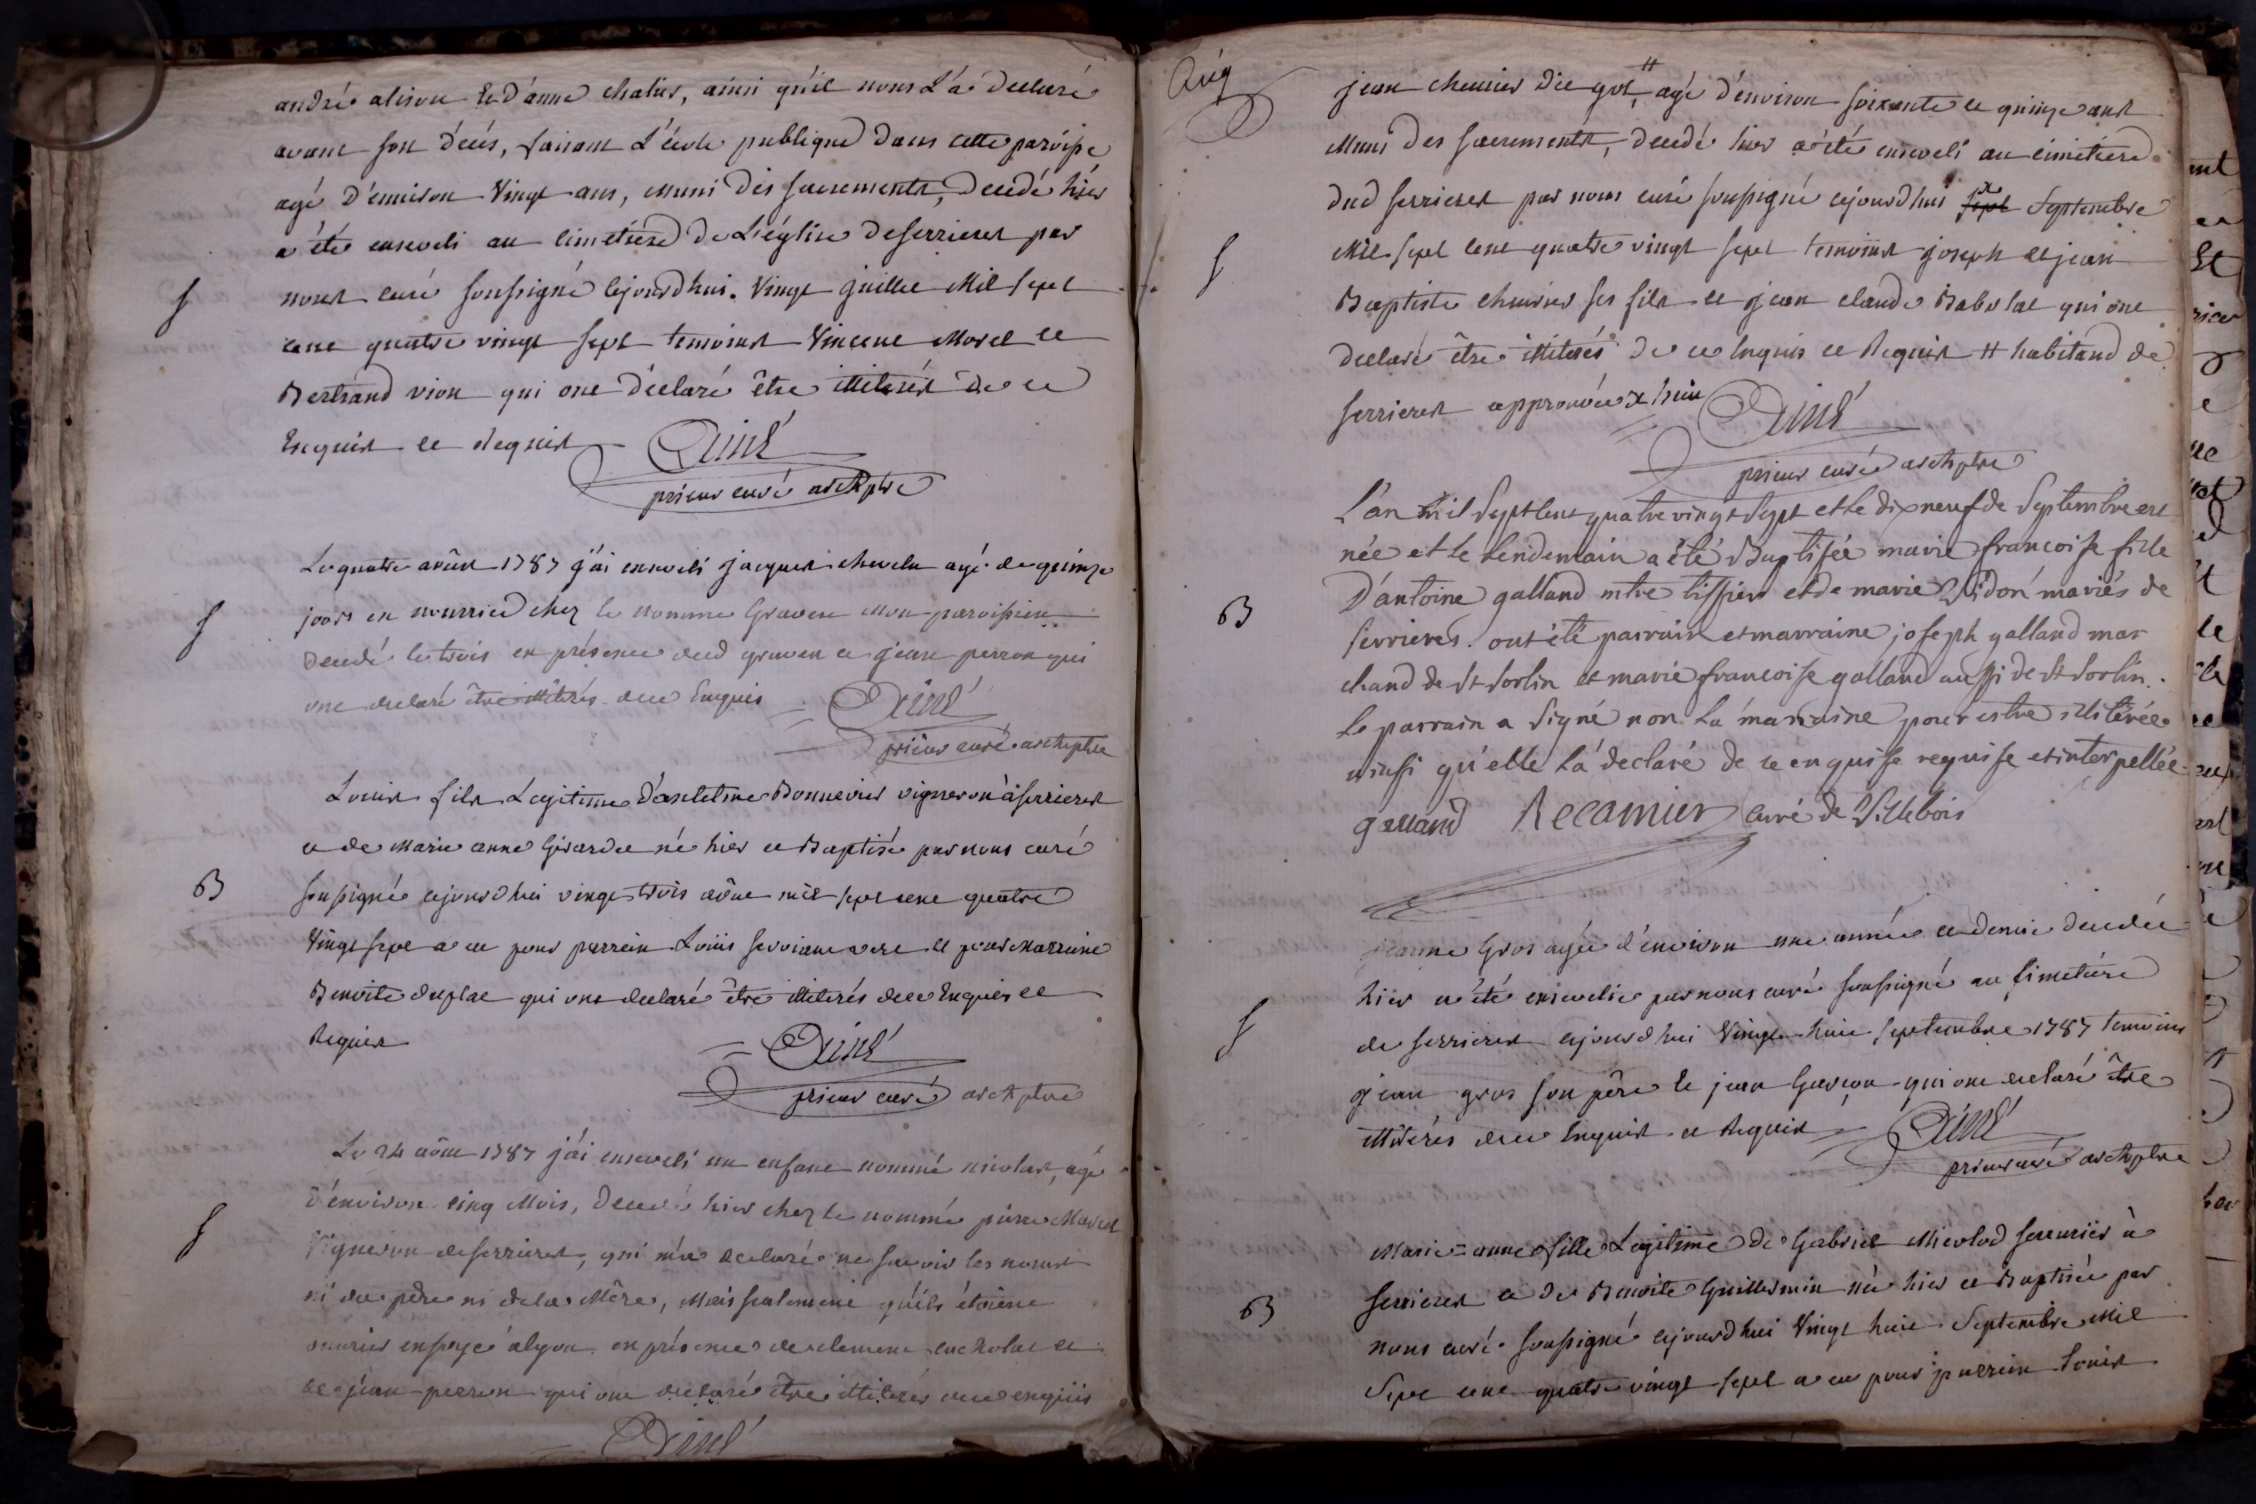 andré alison et d'anne chalus, ainsi qu'il nous L'a declaré
avant son décés, faisant L'école publique dans cette paroisse
agé D'environ Vingt ans, muni des sacrements, decedé hier
a été enseveli au cimetière de L'église de serrieres par
S nous curé soussigné cejourd'hui Vingt juillet Mil sept
cent quatre vingt sept temoins Vincent Morel et
Bertrand vion qui ont déclaré être illiterés de ce
Enquis et Requis
Ainé
prieur curé archiptre
Le quatre août 1787 j'ai enseveli jacques chevelu agé de quinze
S jours en nourrice chez le nommé Graven mon paroissien
decedé le trois en présence dud graven et jean perron qui
ont declaré être illiterés de ce Enquis
Ainé
prieur curé archiptre
Louis fils Legitime d'anthelme Bonnevier vigneron à serrieres
et de Marie anne Girardet né hier et Baptisé par nous curé
B soussigné cejourd'hui vingt trois août mil sept cent quatre
Vingt sept a eu pour parrein Louis et pour Marreine
Benoite duplat qui ont declaré être illiterés de ce Enquis et
Requis
Ainé
prieur curé archiptre
Le 24 août 1787 j'ai enseveli un enfant nommé nicolas, agé
d'environ cinq Mois, decedé hier chez le nommé pierre
S Vigneron de serrieres, qui m'a declaré ne savoir les noms
ni du père ni de la Mère, Mais seulement qu'ils étoient
à lyon en présence de clement cocholat et
de jean perron qui ont declaré être illiterés de ce enquis
Ainé
jean chevrier dit got, # agé d'environ soixante et quinze ans
Muni des sacrements, decedé hier a été enseveli au cimetière
dud serrieres par nous curé soussigné cejourd'hui sept x Septembre
S Mil sept cent quatre vingt sept temoins joseph et jean
Baptiste chevrier ses fils et jean claude Babolat qui ont
declaré être illiterés de ce Enquis et Requis # habitand de
serrieres approuvée x huit
Ainé
prieur curé archiptre
L'an mil Sept Cent quatre vingt Sept et le dix neuf de Septembre est
née et le lendemain a été Baptisée marie francoise fille
D'antoine galland mtre tissier et de marie Didon mariés de
B serrieres. ont été parrain et marraine joseph galland mar
chand de St Sorlin et marie francoise galland aussi de St Sorlin.
Le parrain a Signé non La marraine pour estre illiterée
ainsi qu'elle L'a declaré de ce enquise requise et interpellée
galland Recamier curé de Villebois
jeanne Gros agée d'environ une année et demie decedée
hier a été ensevelie par nous curé soussigné au cimetière
S de serrieres cejourd'hui Vingt huit septembre 1787 temoins
jean gros son père et jean Garçon qui ont declaré être
illiterés de ce Enquis et Requis
Ainé
prieur curé archiptre
Marie=anne fille Legitime de Gabriel Miclod serrurier à
B serrieres et de Benoite Guillermin née hier et Baptisée par
nous curé soussigné cejourd'hui Vingt huit Septembre Mil
Sept cent quatre vingt sept a eu pour parrein Louis